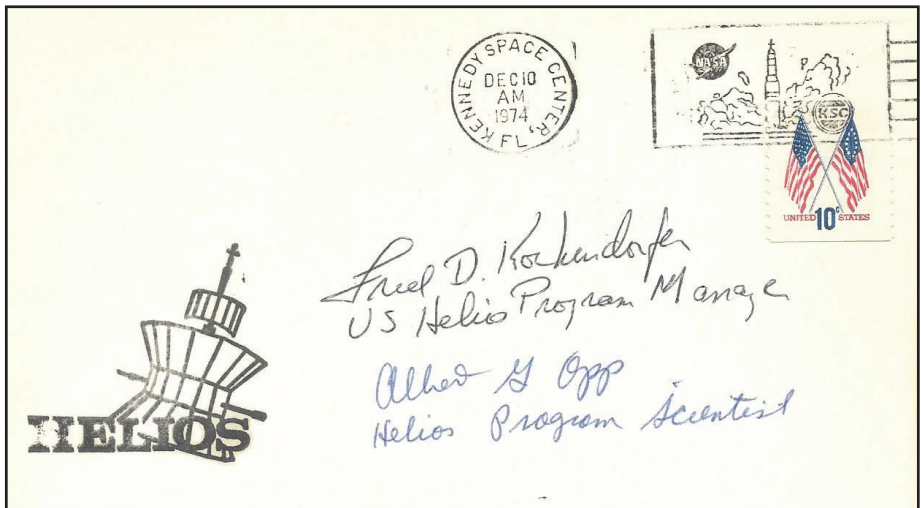 KENNEDY SPACE CENTER, FL
DEC 10
AM
1974
NASA
KSC
UNITED 10c STATES
Fred D. Kochendorfer
US Helios Program Manager
Albert G Opp
Helios Program Scientist
HELIOS